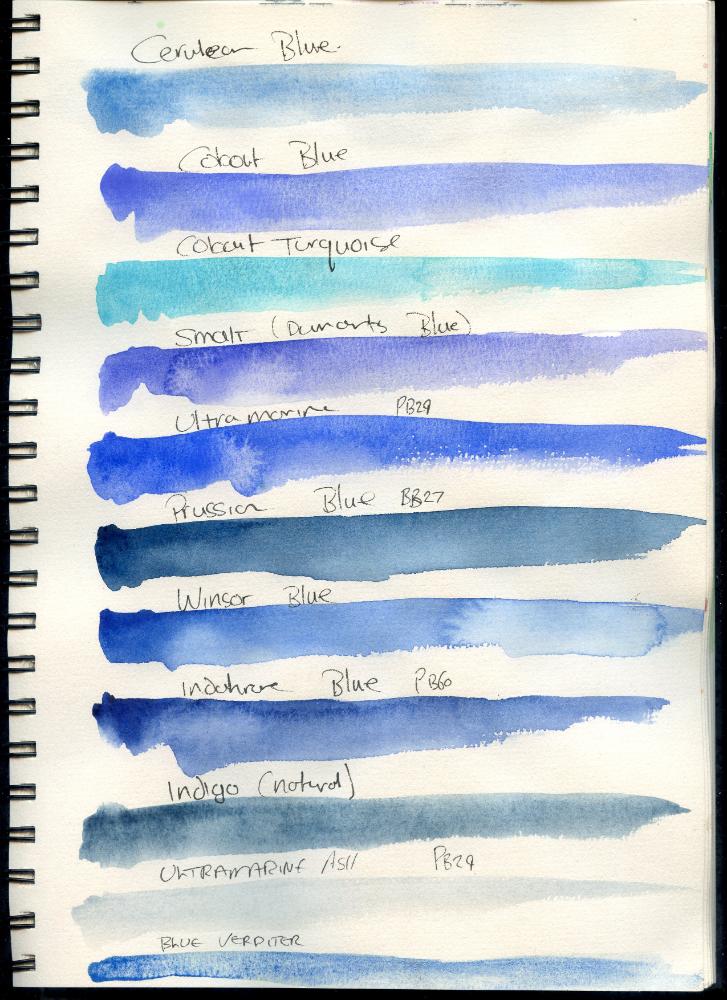 Cerulean Blue
Cobalt Blue
Cobalt Turquoise
Smalt (Dumonts Blue)
Ultramarine PB29
Prussian Blue BB27
Winsor Blue
Indathrone Blue PB60
Indigo (natural)
ULTRAMARINE ASH PB29
BLUE VERDITER